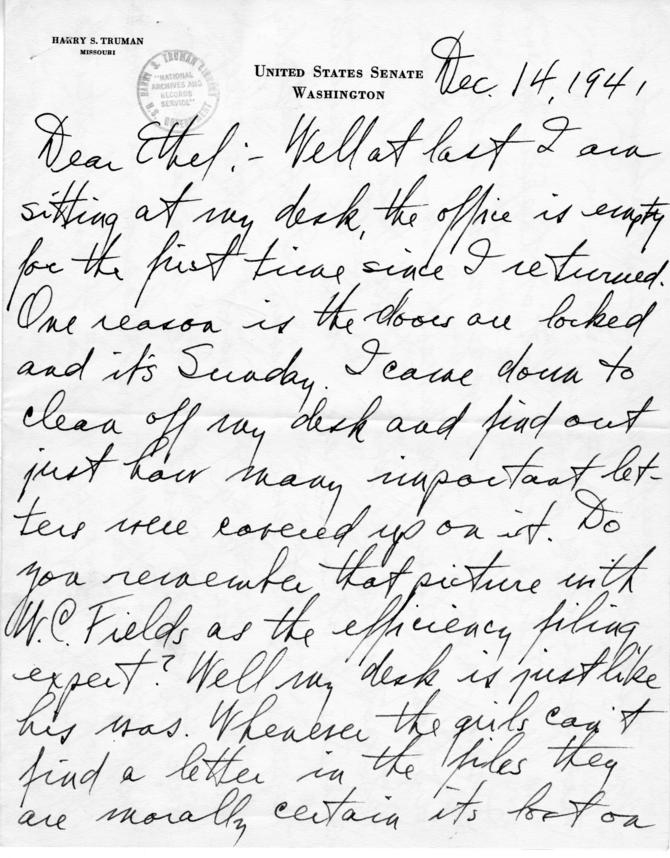 HARRY S. TRUMAN
MISSOURI
HARRY S. TRUMAN LIBRARY
"NATIONAL
ARCHIVES AND
RECORDS
SERVICE"
U.S. GOVERNMENT
UNITED STATES SENATE
WASHINGTON
Dec. 14, 1941
Dear Ethel:- Well at last I am
sitting at my desk, the office is empty
for the first time since I returned.
One reason is the doors are locked
and it's Sunday. I came down to
clean off my desk and find out
just how many important let-
ters were covered up on it. Do
you remember that picture with
W.C. Fields as the efficiency filing
expert? Well my desk is just like
his was. Whenever the girls can't
find a letter in the files they
are morally certain its lost on